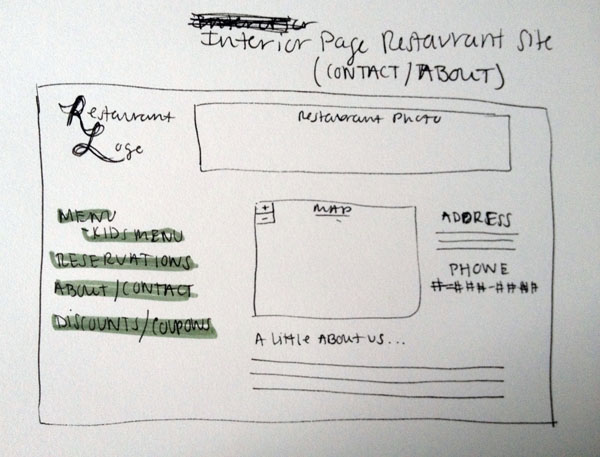 Interior Page Restaurant Site
(CONTACT/ABOUT)
Restaurant
Loge
Restaurant Photo
MENU
-KIDS MENU
RESERVATIONS
ABOUT/CONTACT
DISCOUNTS/COUPONS
+
-
MAP
ADDRESS
PHONE
#-###-####
A little ABOUT US...